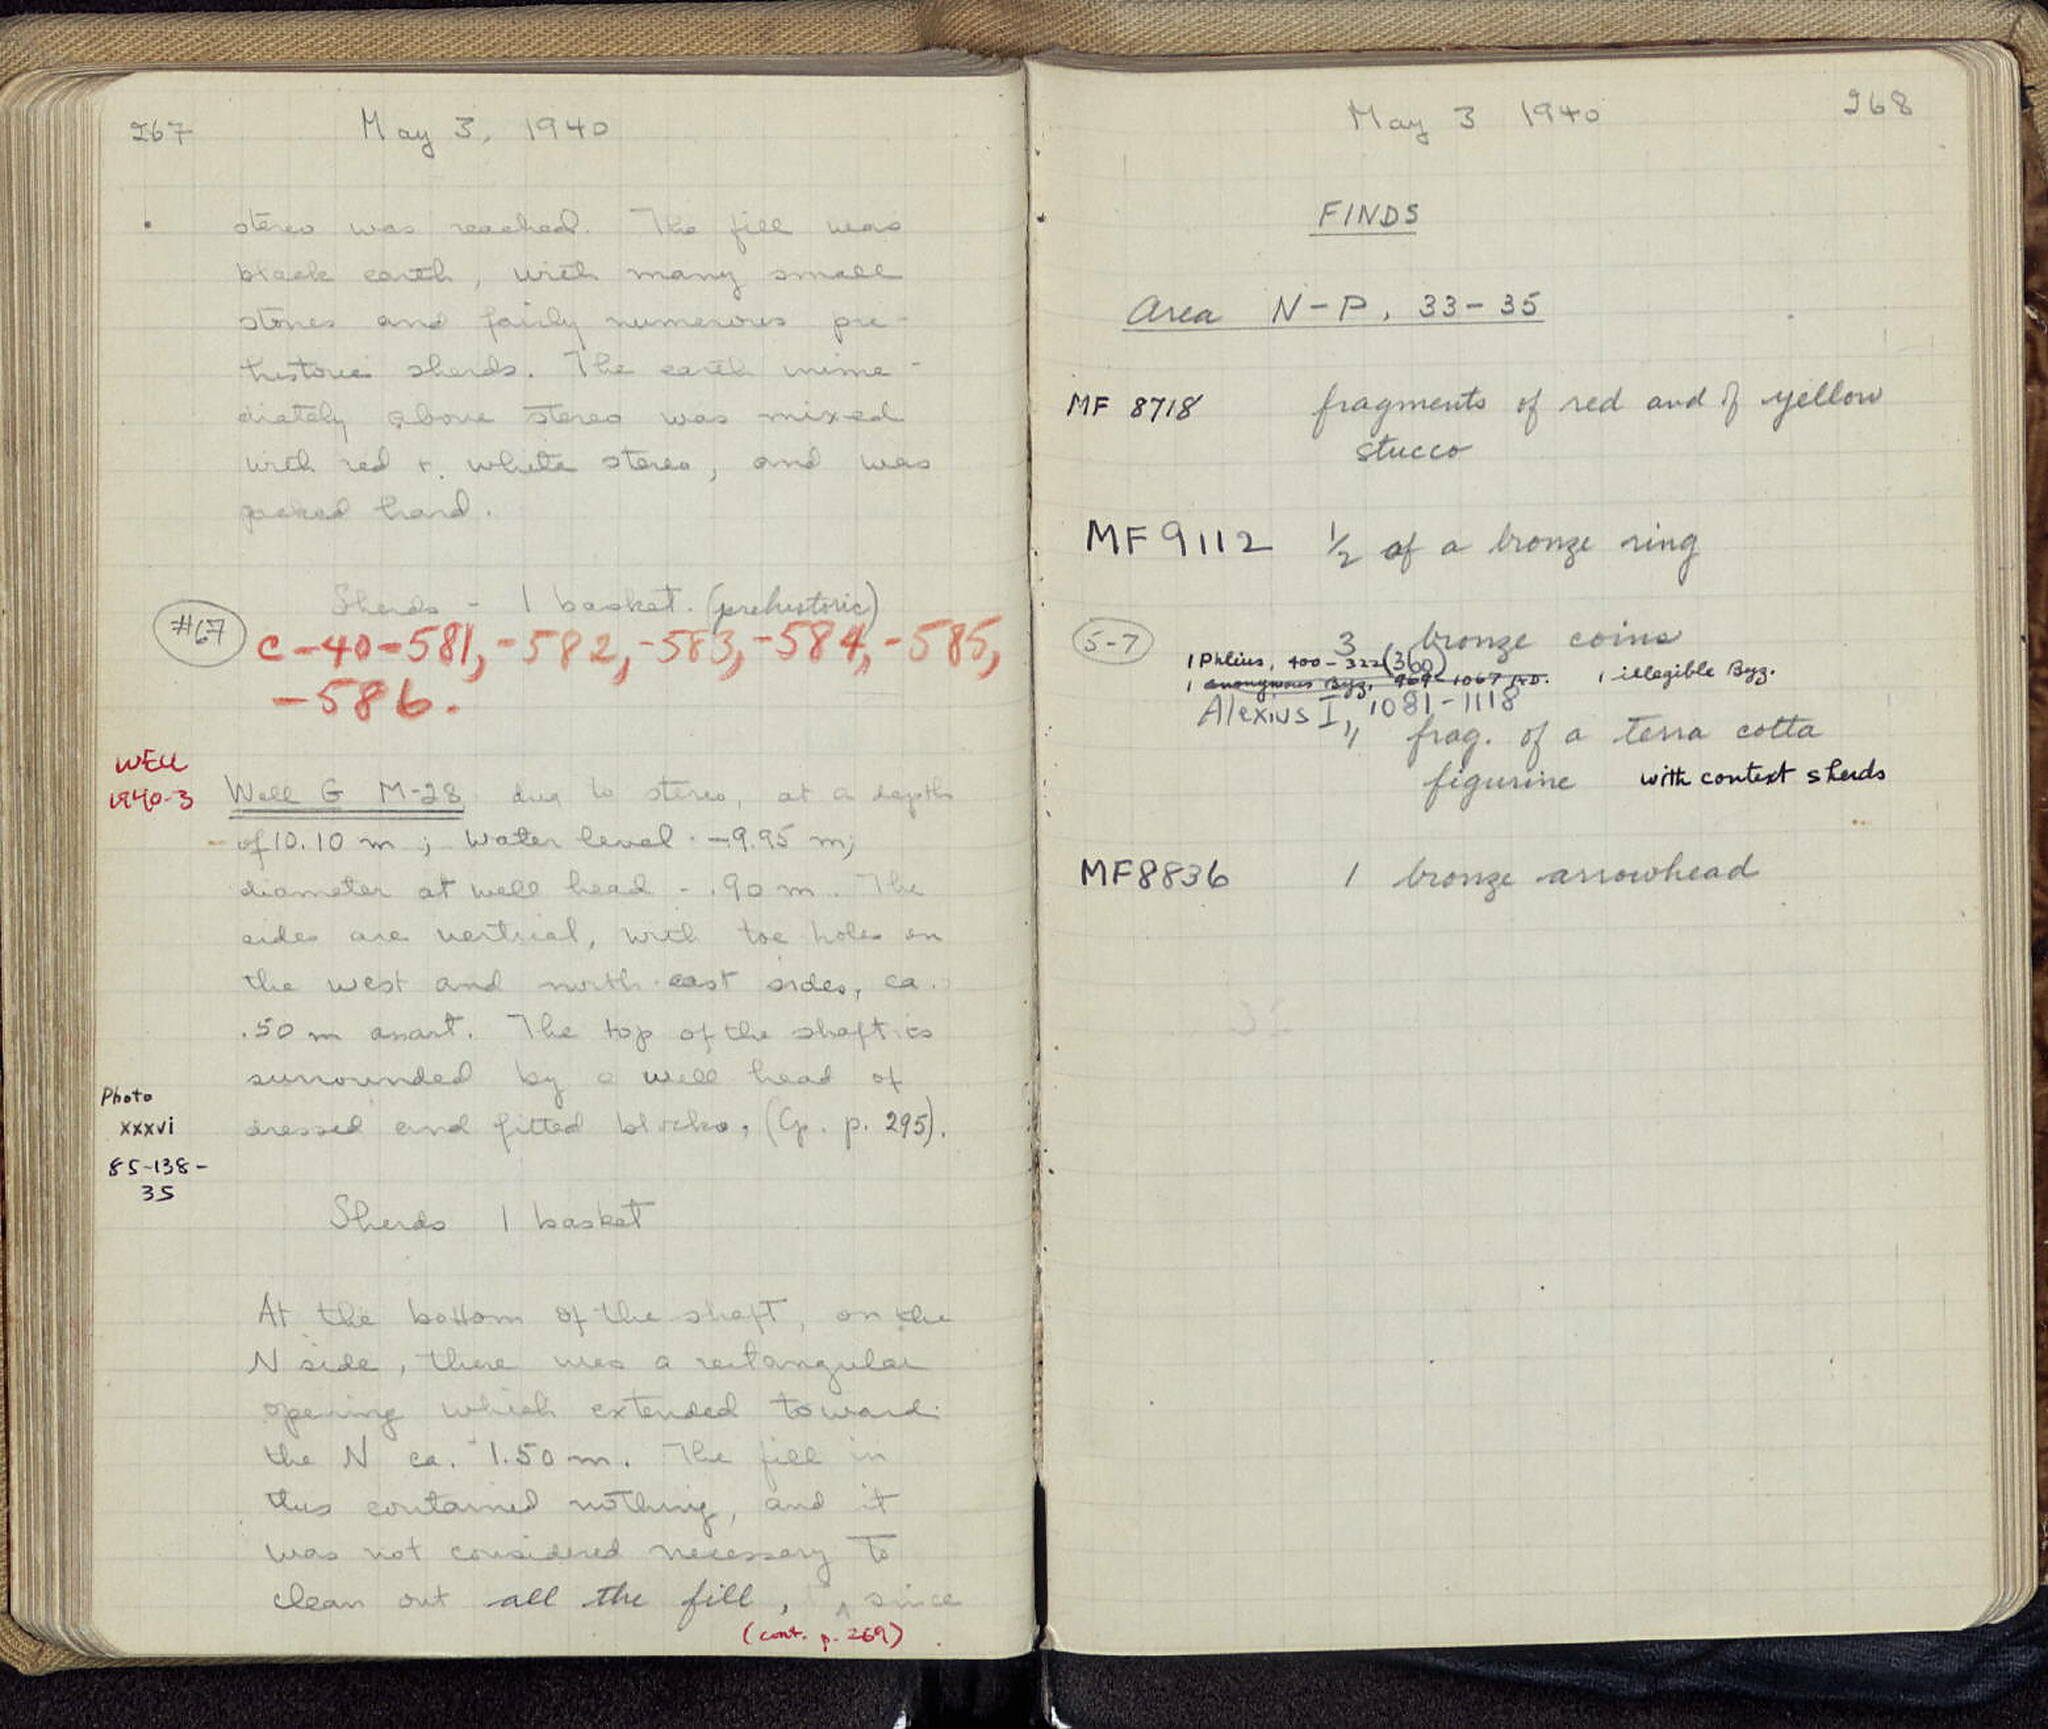 267
May 3, 1940
stereo was reached. The fill was
black earth, with many small
stones and fairly numerous pre-
historic sherds. The earth imme-
diately above stereo was mixed
with red + white stereo, and was
packed hard.
Sherds - 1 basket. (prehistoric)
#67
C-40-581, -582, -583, -584, -585,
-586.
WELL
1940-3
Well G M-28 dug to stereo, at a depth
of 10.10 m; Water level -9.95 m;
diameter at well head - .90 m. The
sides are vertical, with toe holes on
the west and north-east sides, ca.
.50 m apart. The top of the shaft is
surrounded by a well head of
dressed and fitted blocks, (Cp. p. 295).
Photo
xxxvi
85-138-
35
Sherds 1 basket
At the bottom of the shaft, on the
N side, there was a rectangular
opening which extended toward
the N ca. 1.50 m. The fill in
this contained nothing, and it
was not considered necessary to
clean out all the fill, ^ since
(cont. p. 269)
May 3 1940
268
FINDS
Area N-P, 33-35
MF 8718 fragments of red and of yellow
stucco
MF9112 1/2 of a bronze ring
5-7
3 bronze coins
1 Phlius, 400-322 (360)
1 anonymous Byz. 969-1067 A.D. 1 illegible Byz.
Alexius I, 1081-1118
1 frag. of a terra cotta
figurine with context sherds
MF8836 1 bronze arrowhead